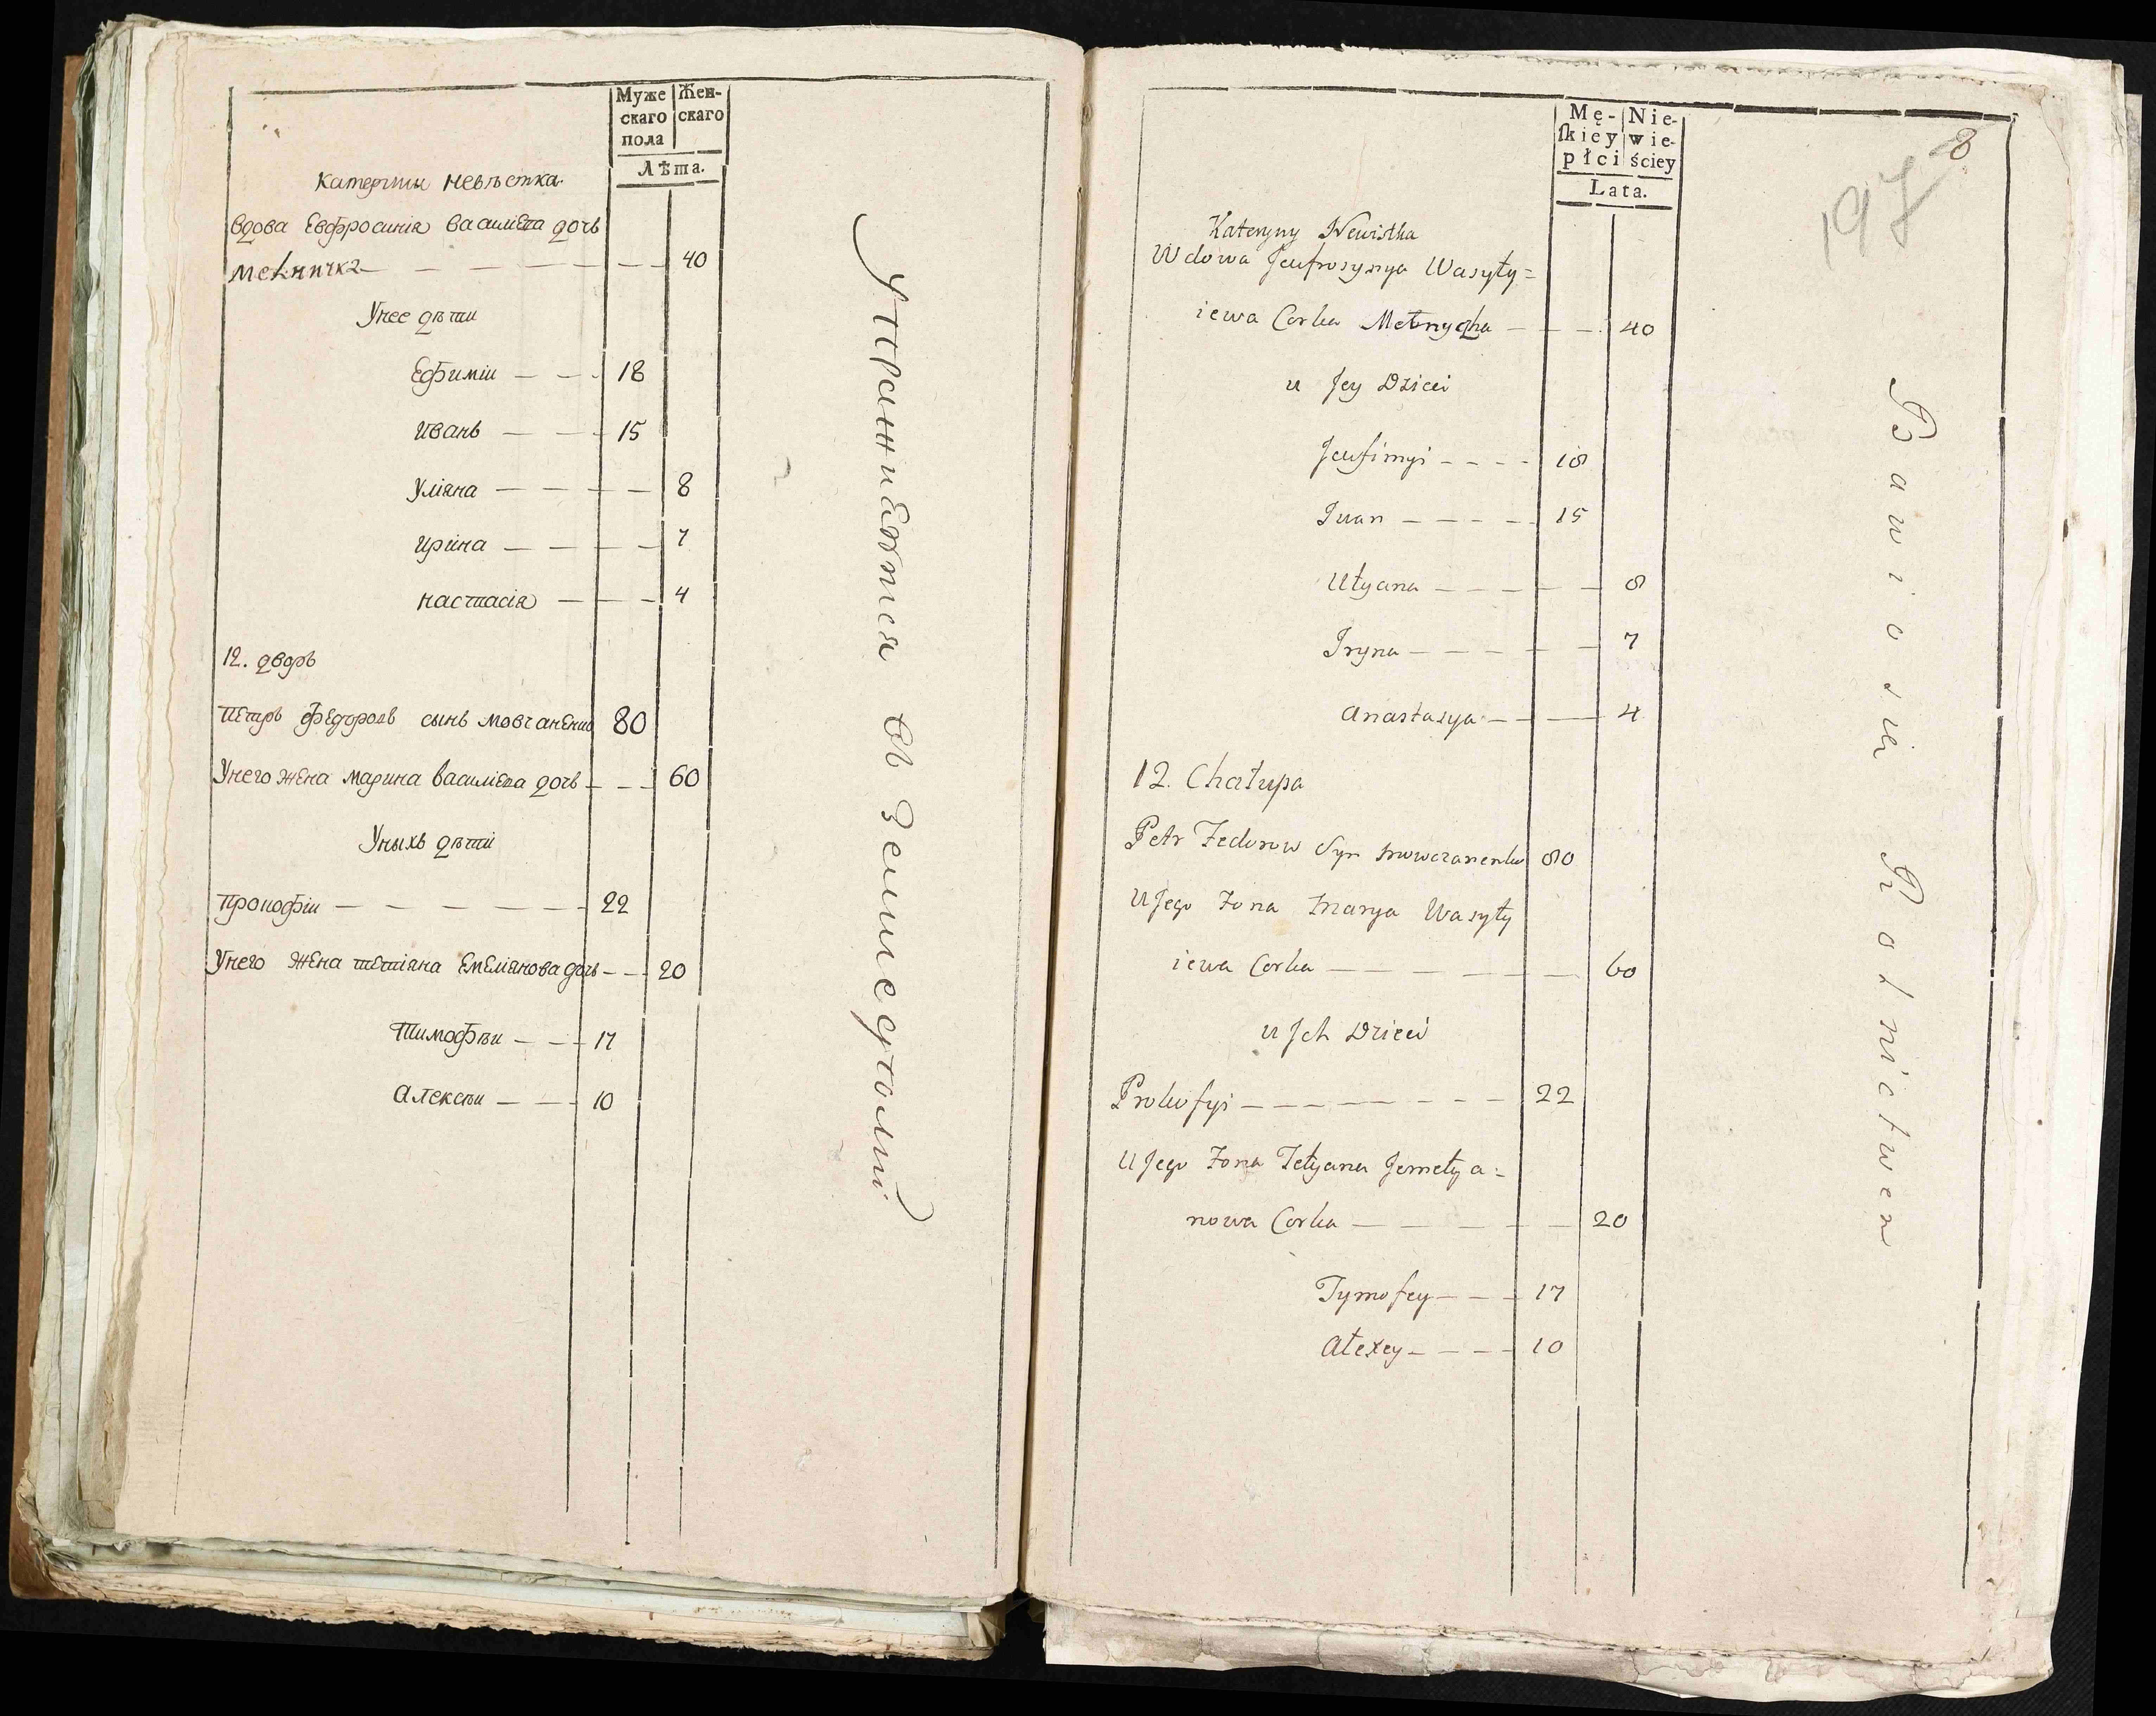 Муже
скаго
пола
Жен-
скаго
Лѣта.
Катерини невѣстка
вдова Евфросинія василіева дочь
мелничка — — — — — — 40
Унее дѣти
Ефиміи — — 18
Иванъ — — 15
Уліяна — — — — 8
Ирина — — — — 7
настасія — — — 4
12. дворъ
Петръ федоровъ сынъ мовчаненко 80
Унего жена марина василіева дочь — — 60
Уныхъ дѣти
Прокофіи — — — — — 22
Унего жена тетіана Емеліянова дочь — — 20
Тимофѣи — — 17
Алексѣи — — 10
Упражняются въ Земледѣліи
Mę-
skiey
płci
Nie-
wie-
ściey
Lata.
197
8
Kateryny Newistka
Wdowa Jeufrosynya Wasyły=
iewa Corka Mełnyczka — — — 40
u Jey Dzieci
Jeufimyi — — — — 18
Iwan — — — — 15
Ulyana — — — — — 8
Iryna — — — — — 7
Anastasya — — — 4
12. Chałupa
Petr Fedorow Syn Mowczanenko 80
U Jego Żona Marya Wasyły
iewa Corka — — — — — 60
u Jch Dzieci
Prokofyi — — — — — — 22
U Jego Żona Tetyana Jemełya=
nowa Corka — — — — — 20
Tymofey — — — 17
Ałexey — — — — 10
Bawio się Rolnictwem